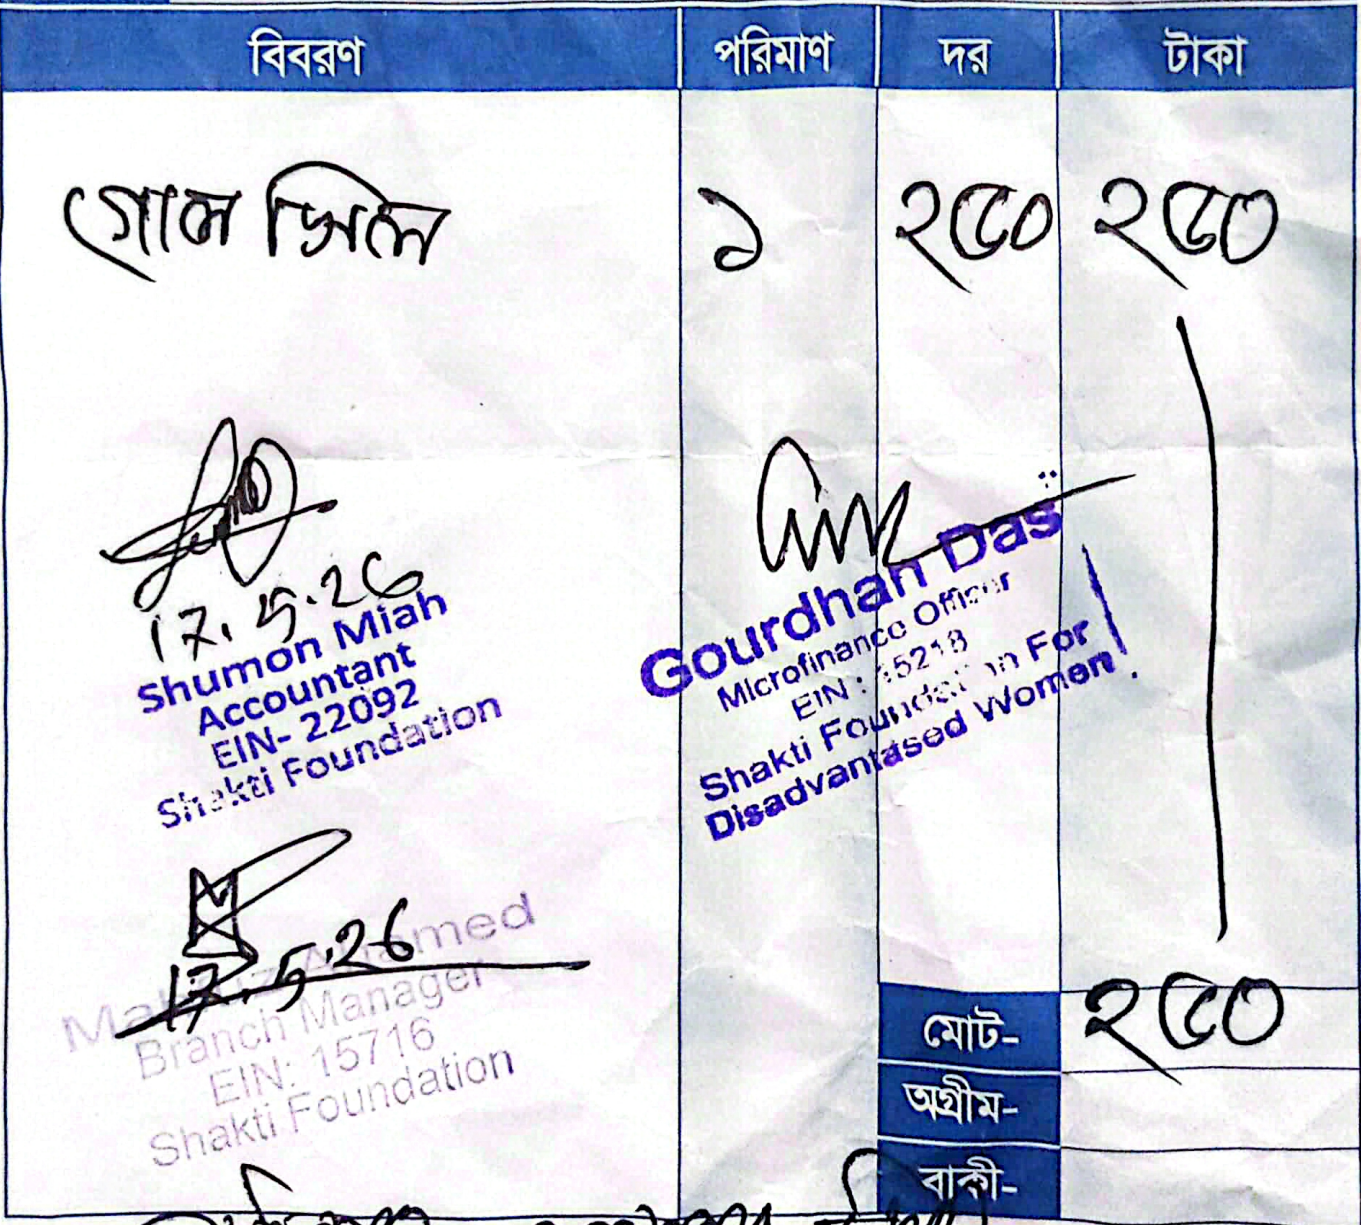 বিবরণ পরিমাণ দর টাকা
গোল সিল ১ ২৫০ ২৫০
17.5.26
Shumon Miah
Accountant
EIN- 22092
Shakti Foundation
Gourdhan Das
Microfinance Officer
EIN : 15218
Shakti Foundation For
Disadvantased Women
17.5.26
Ahamed
Branch Manager
EIN: 15716
Shakti Foundation
মোট- ২৫০
অগ্রীম-
বাকী-